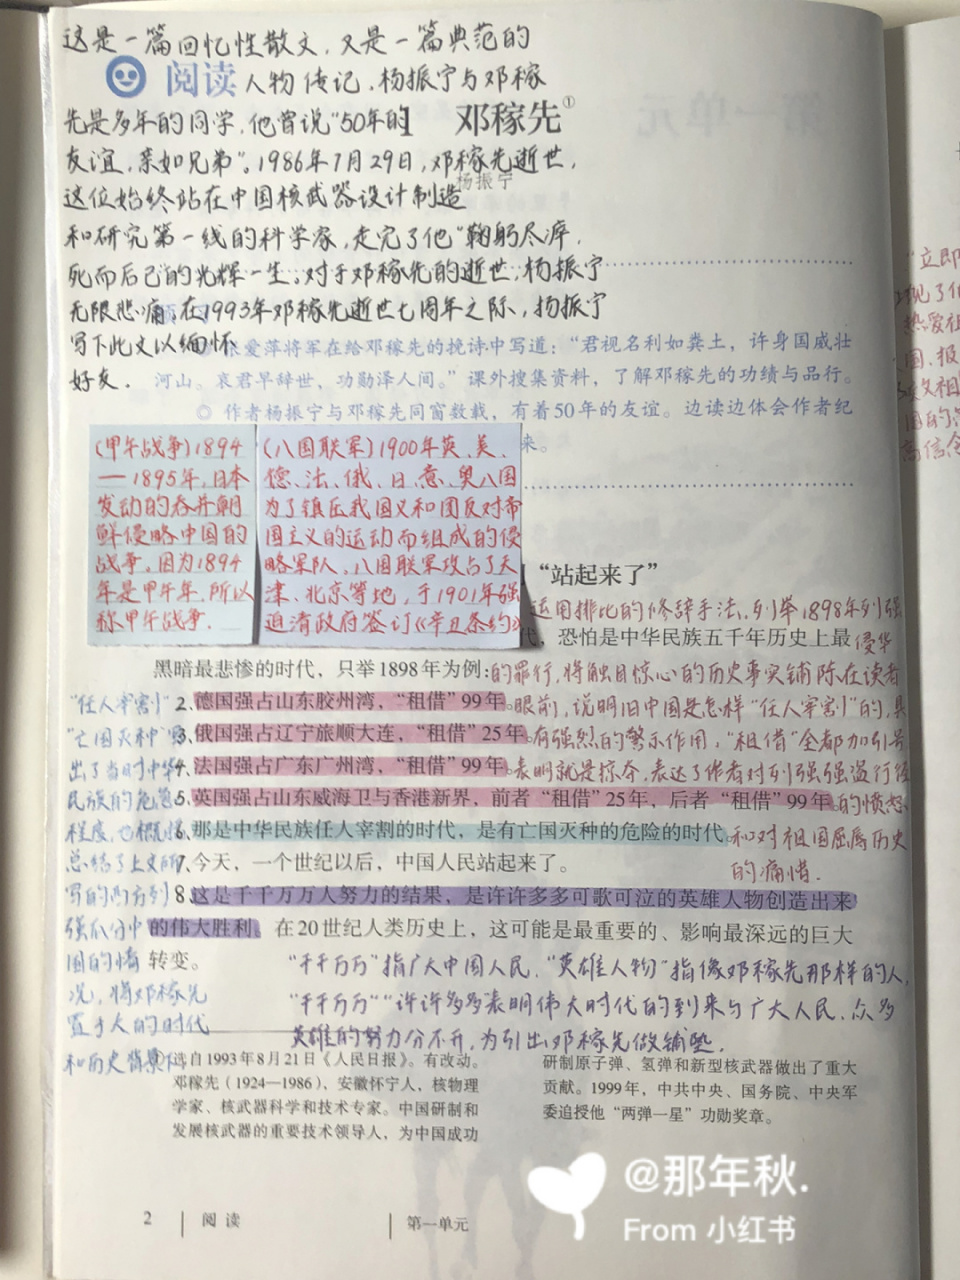 这是一篇回忆性散文，又是一篇典范的
阅读
人物传记．杨振宁与邓稼
先是多年的同学，他曾说"50年的
邓稼先①
友谊，亲如兄弟"。1986年7月29日，邓稼先逝世，
杨振宁
这位始终站在中国核武器设计制造
和研究第一线的科学家，走完了他"鞠躬尽瘁，
死而后已"的光辉一生．对于邓稼先的逝世，杨振宁
无限悲痛，在1993年邓稼先逝世七周年之际，扬振宁
写下此文以缅怀
好友．
爱萍将军在给邓稼先的挽诗中写道：“君视名利如粪土，许身国威壮
河山。哀君早辞世，功勋泽人间。”课外搜集资料，了解邓稼先的功绩与品行。
◎ 作者杨振宁与邓稼先同窗数载，有着50年的友谊。边读边体会作者纪
来。
(甲午战争)1894
—1895年，日本
发动的吞并朝
鲜侵略中国的
战争，因为1894
年是甲午年，所以
称甲午战争．
(八国联军)1900年英、美、
德、法、俄、日、意、奥八国
为了镇压我国义和团反对帝
国主义的运动而组成的侵
略军队，八国联军攻占了天
津、北京等地，于1901年强
迫清政府签订《辛丑条约》
“站起来了”
运用排比的修辞手法，列举1898年列强
代，恐怕是中华民族五千年历史上最
侵华
黑暗最悲惨的时代，只举1898年为例：
的罪行，将触目惊心的历史事实铺陈在读者
2、德国强占山东胶州湾，“租借”99年。
眼前，说明旧中国是怎样"任人宰割"的，具
3、俄国强占辽宁旅顺大连，“租借”25年。
有强烈的警示作用，"租借"全都加引号
4、法国强占广东广州湾，“租借”99年。
表明就是掠夺，表达了作者对列强强盗行径
5、英国强占山东威海卫与香港新界，前者“租借”25年，后者“租借”99年。
的愤怒
6、那是中华民族任人宰割的时代，是有亡国灭种的危险的时代。
和对祖国屈辱历史
7、今天，一个世纪以后，中国人民站起来了。
的痛惜．
8、这是千千万万人努力的结果，是许许多多可歌可泣的英雄人物创造出来
的伟大胜利。在20世纪人类历史上，这可能是最重要的、影响最深远的巨大
转变。
"任人宰割"
"亡国灭种"写
出了当时中华
民族的危急
程度，也概括
总结了上文所
写的内容列
强瓜分中
国的情
况，将邓稼先
置于大的时代
和历史背景下
"千千万万"指广大中国人民，"英雄人物"指像邓稼先那样的人，
"千千万万""许许多多"表明伟大时代的到来与广大人民、众多
英雄的努力分不开，为引出邓稼先做铺垫．
选自1993年8月21日《人民日报》。有改动。
邓稼先（1924—1986），安徽怀宁人，核物理
学家、核武器科学和技术专家。中国研制和
发展核武器的重要技术领导人，为中国成功
研制原子弹、氢弹和新型核武器做出了重大
贡献。1999年，中共中央、国务院、中央军
委追授他“两弹一星”功勋奖章。
2
阅 读
第一单元
"立即
现了他
热爱祖
国、报
国的
高信念
@那年秋.
From 小红书